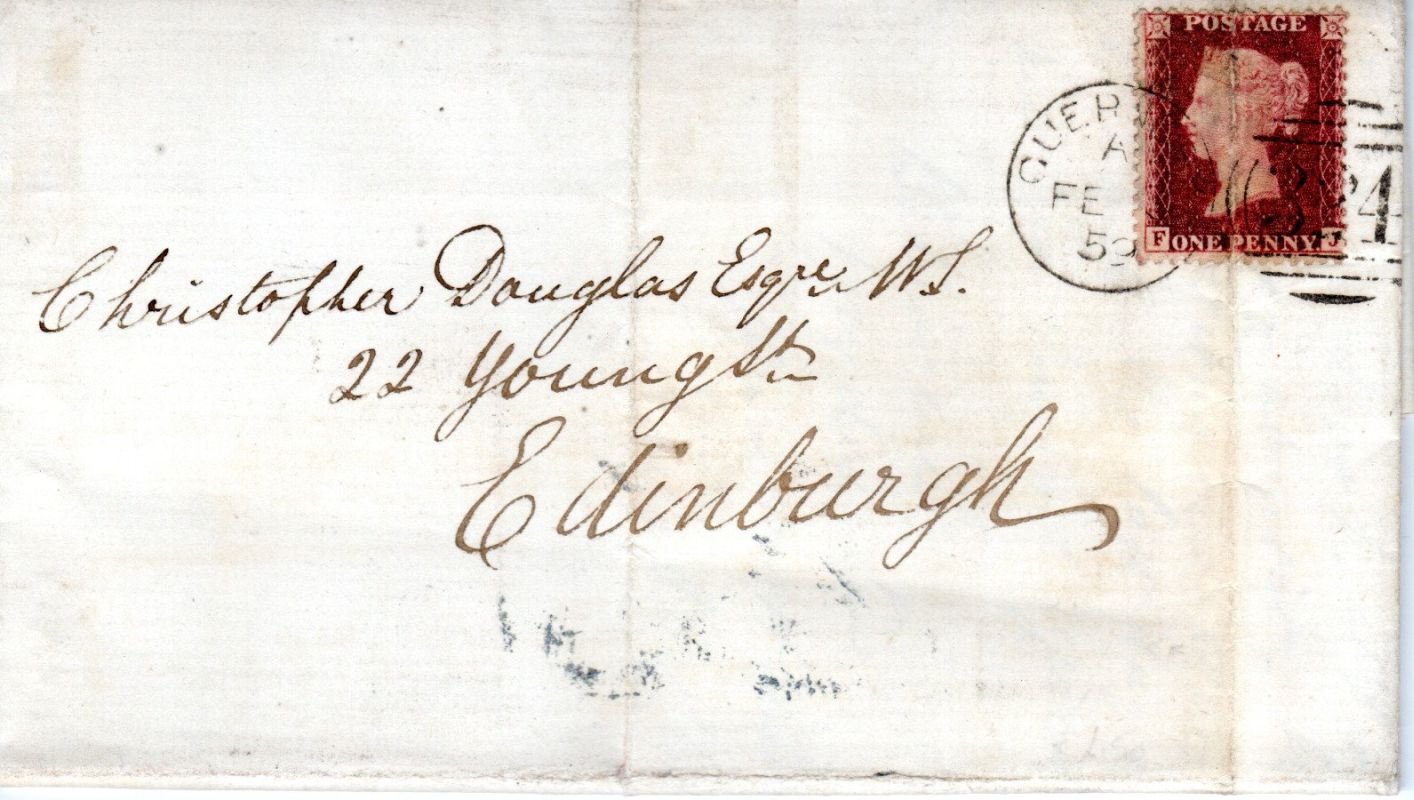 POSTAGE
GUER
A
FE
59
324
F ONE PENNY. J
Christopher Douglas Esqre. W.S.
22 Young St.
Edinburgh